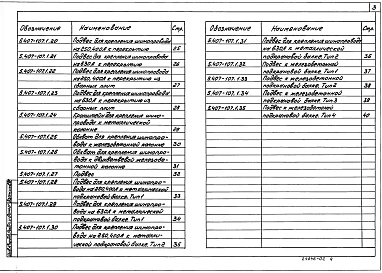 3
Обозначение Наименование Стр.
5.407-107.1.20 Подвес для крепления шинопровода
на 250,400А к перекрытию 25
5.407-107.1.21 Подвес для крепления шинопровода
на 630А к перекрытию 26
5.407-107.1.22 Подвес для крепления шинопровода
на 250,400А к перекрытию из
сборных плит 27
5.407-107.1.23 Подвес для крепления шинопровода
на 630А к перекрытию из
сборных плит 28
5.407-107.1.24 Кронштейн для крепления шино-
провода к металлической
колонне 29
5.407-107.1.25 Обхват для крепления шинопро-
вода к железобетонной колонне 30
5.407-107.1.26 Обхват для крепления шинопро-
вода к двухветвевой железобе-
тонной колонне 31
5.407-107.1.27 Подвес 32
5.407-107.1.28 Подвес для крепления шинопро-
вода на 250,400А к металлической
подкрановой балке. Тип 1 33
5.407-107.1.29 Подвес для крепления шинопро-
вода на 630А к металлической
подкрановой балке. Тип 1 34
5.407-107.1.30 Подвес для крепления шинопро-
вода на 250,400А к металли-
ческой подкрановой балке. Тип 2 35
Обозначение Наименование Стр.
5.407-107.1.31 Подвес для крепления шинопровода
на 630А к металлической
подкрановой балке. Тип 2 36
5.407-107.1.32 Подвес к железобетонной
подкрановой балке. Тип 1 37
5.407-107.1.33 Подвес к железобетонной
подкрановой балке. Тип 2 38
5.407-107.1.34 Подвес к железобетонной
подкрановой балке. Тип 3 39
5.407-107.1.35 Подвес к железобетонной
подкрановой балке. Тип 4 40
4